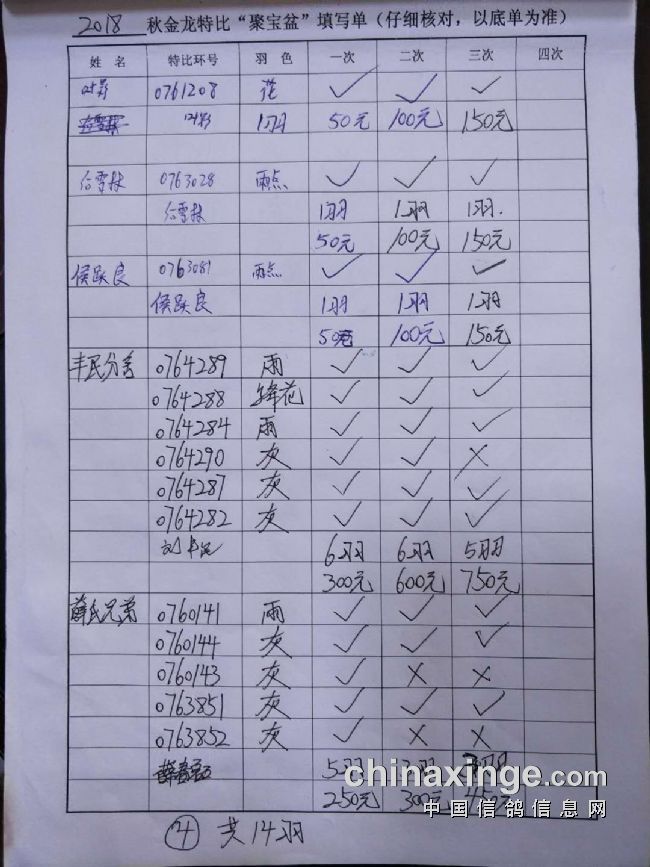 2018 秋金龙特比“聚宝盆”填写单（仔细核对，以底单为准）
姓 名 特比环号 羽 色 一次 二次 三次 四次
叶彩 0761208 花 ✓ ✓ ✓
叶彩 1羽 50元 100元 150元
0763028 雨点 ✓ ✓ ✓
1羽 1羽 1羽.
50元 100元 150元
侯跃良 0763081 雨点 ✓ ✓ ✓
侯跃良 1羽 1羽 1羽
50元 100元 150元
丰民分舍 0764289 雨 ✓ ✓ ✓
0764288 绛花 ✓ ✓ ✓
0764284 雨 ✓ ✓ ✓
0764290 灰 ✓ ✓ ×
0764287 灰 ✓ ✓ ✓
0764282 灰 ✓ ✓ ✓
6羽 6羽 5羽
300元 600元 750元
薛氏兄弟 0760141 雨 ✓ ✓ ✓
0760144 灰 ✓ ✓ ✓
0760143 灰 ✓ × ×
0763851 灰 ✓ ✓ ✓
0763852 灰 ✓ × ×
5羽 3羽 3羽
250元 300元 450元
④ 共14羽
chinaxinge.com
中国信鸽信息网